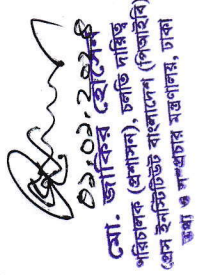 ০১.০১.২০২৪
মো. জাকির হোসেন
পরিচালক (প্রশাসন), চলতি দায়িত্ব
প্রেস ইনস্টিটিউট বাংলাদেশ (পিআইবি)
তথ্য ও সম্প্রচার মন্ত্রণালয়, ঢাকা